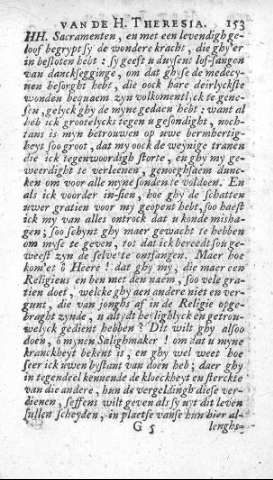 VAN DE H. THERESIA. 153
HH. Sacramenten, en met een levendigh ge-
loof begrypt sy de wondere kracht, die ghy'er
in besloten hebt: sy geeft u duysent lof-sangen
van danckfegginge, om dat ghyse de medecy-
nen besorght hebt, die oock hare deirlyckste
wonden bequaem zyn volkomentlyck te gene-
sen, gelyck ghy de myne gedaen hebt: want al
heb ick grootelyckx tegen u gesondight, noch-
tans is myn betrouwen op uwe bermhertig-
heyt soo groot, dat my oock de weynige tranen
die ick tegenwoordigh storte, en ghy my ge-
weerdight te verleenen, genoeghsaem dunc-
ken om voor alle myne sonden te voldoen. En
als ick voorder in-sien, hoe ghy de schatten
uwer gratien voor my geopent hebt, soo haest
ick my van alles ontrock dat u konde misha-
gen; soo schynt ghy maer gewacht te hebben
om myse te geven, tot dat ick bereedt son ge-
weest zyn de selve te ontfangen. Maer hoe
kom'et ô Heere! dat ghy my, die maer een
Religieus en ben met den naem, soo vele gra-
tien doet, welcke ghy aen andere niet en ver-
gunt, die van jonghs af in de Religie opge-
braght zynde, u altydt heylighlyck en getrou-
welyck gedient hebben? Dit wilt ghy alsoo
doen, ô mynen Salighmaker! om dat u myne
kranckheyt bekent is, en ghy wel weet hoe
seer ick uwen bystant van doen heb; daer ghy
in tegendeel kennende de kloeckheyt en sterckte
van die andere, hun de vergeldingh diese ver-
dienen, seffens wilt geven als sy uyt dit leven
sullen scheyden, in plaetse vanse hun hier al-
G 5 lenghs-